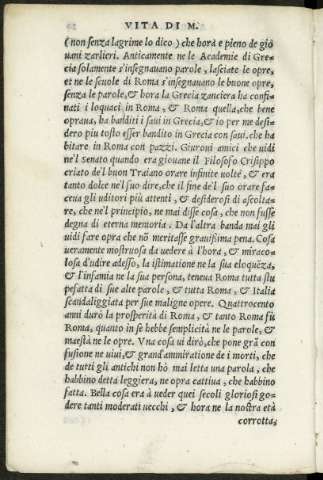 VITA DI M.
(non senza lagrime lo dico) che hora e pieno de gio
uani zarlieri. Anticamente ne le Academie di Gre-
cia solamente s'insegnauano parole, lasciate le opre,
et ne le scuole di Roma s'insegnauano le buone opre,
senza le parole, & hora la Grecia zanciera ha confi-
nati i loquaci in Roma, & Roma quella, che bene
opraua, ha banditi i saui in Grecia, & io per me desi-
dero piu tosto esser bandito in Grecia con saui, che ha
bitare in Roma con pazzi. Giuroni amici che uidi
ne'l Senato quando era giouane il Filosofo Crisippo
criato de'l buon Traiano orare infinite uolte, & era
tanto dolce ne'l suo dire, che il fine de'l suo orare fa-
ceua gli uditori più attenti, & desiderosi di ascolta-
re, che ne'l principio, ne mai disse cosa, che non fusse
degna di eterna memoria. Da l'altra banda mai gli
uidi fare opra che nō meritasse grauissima pena. Cosa
ueramente mostruosa da uedere à l'hora, & miraco-
losa d'udire adesso, la istimatione ne la sua eloquēza,
& l'infamia ne la sua persona, teneua Roma tutta stu
pefatta di sue alte parole, & tutta Roma, & Italia
scandaliggiata per sue maligne opere. Quattrocento
anni durò la prosperità di Roma, & tanto Roma fù
Roma, quanto in sè hebbe semplicità ne le parole, &
maestà ne le opre. Vna cosa ui dirò, che pone grā con
fusione ne uiui, & grand'ammiratione de i morti, che
de tutti gli antichi non hò mai letta una parola, che
habbino detta leggiera, ne opra cattiua, che habbino
fatta. Bella cosa era à ueder quei secoli gloriosi go-
dere tanti moderati uecchi, & hora ne la nostra età
corrotta,